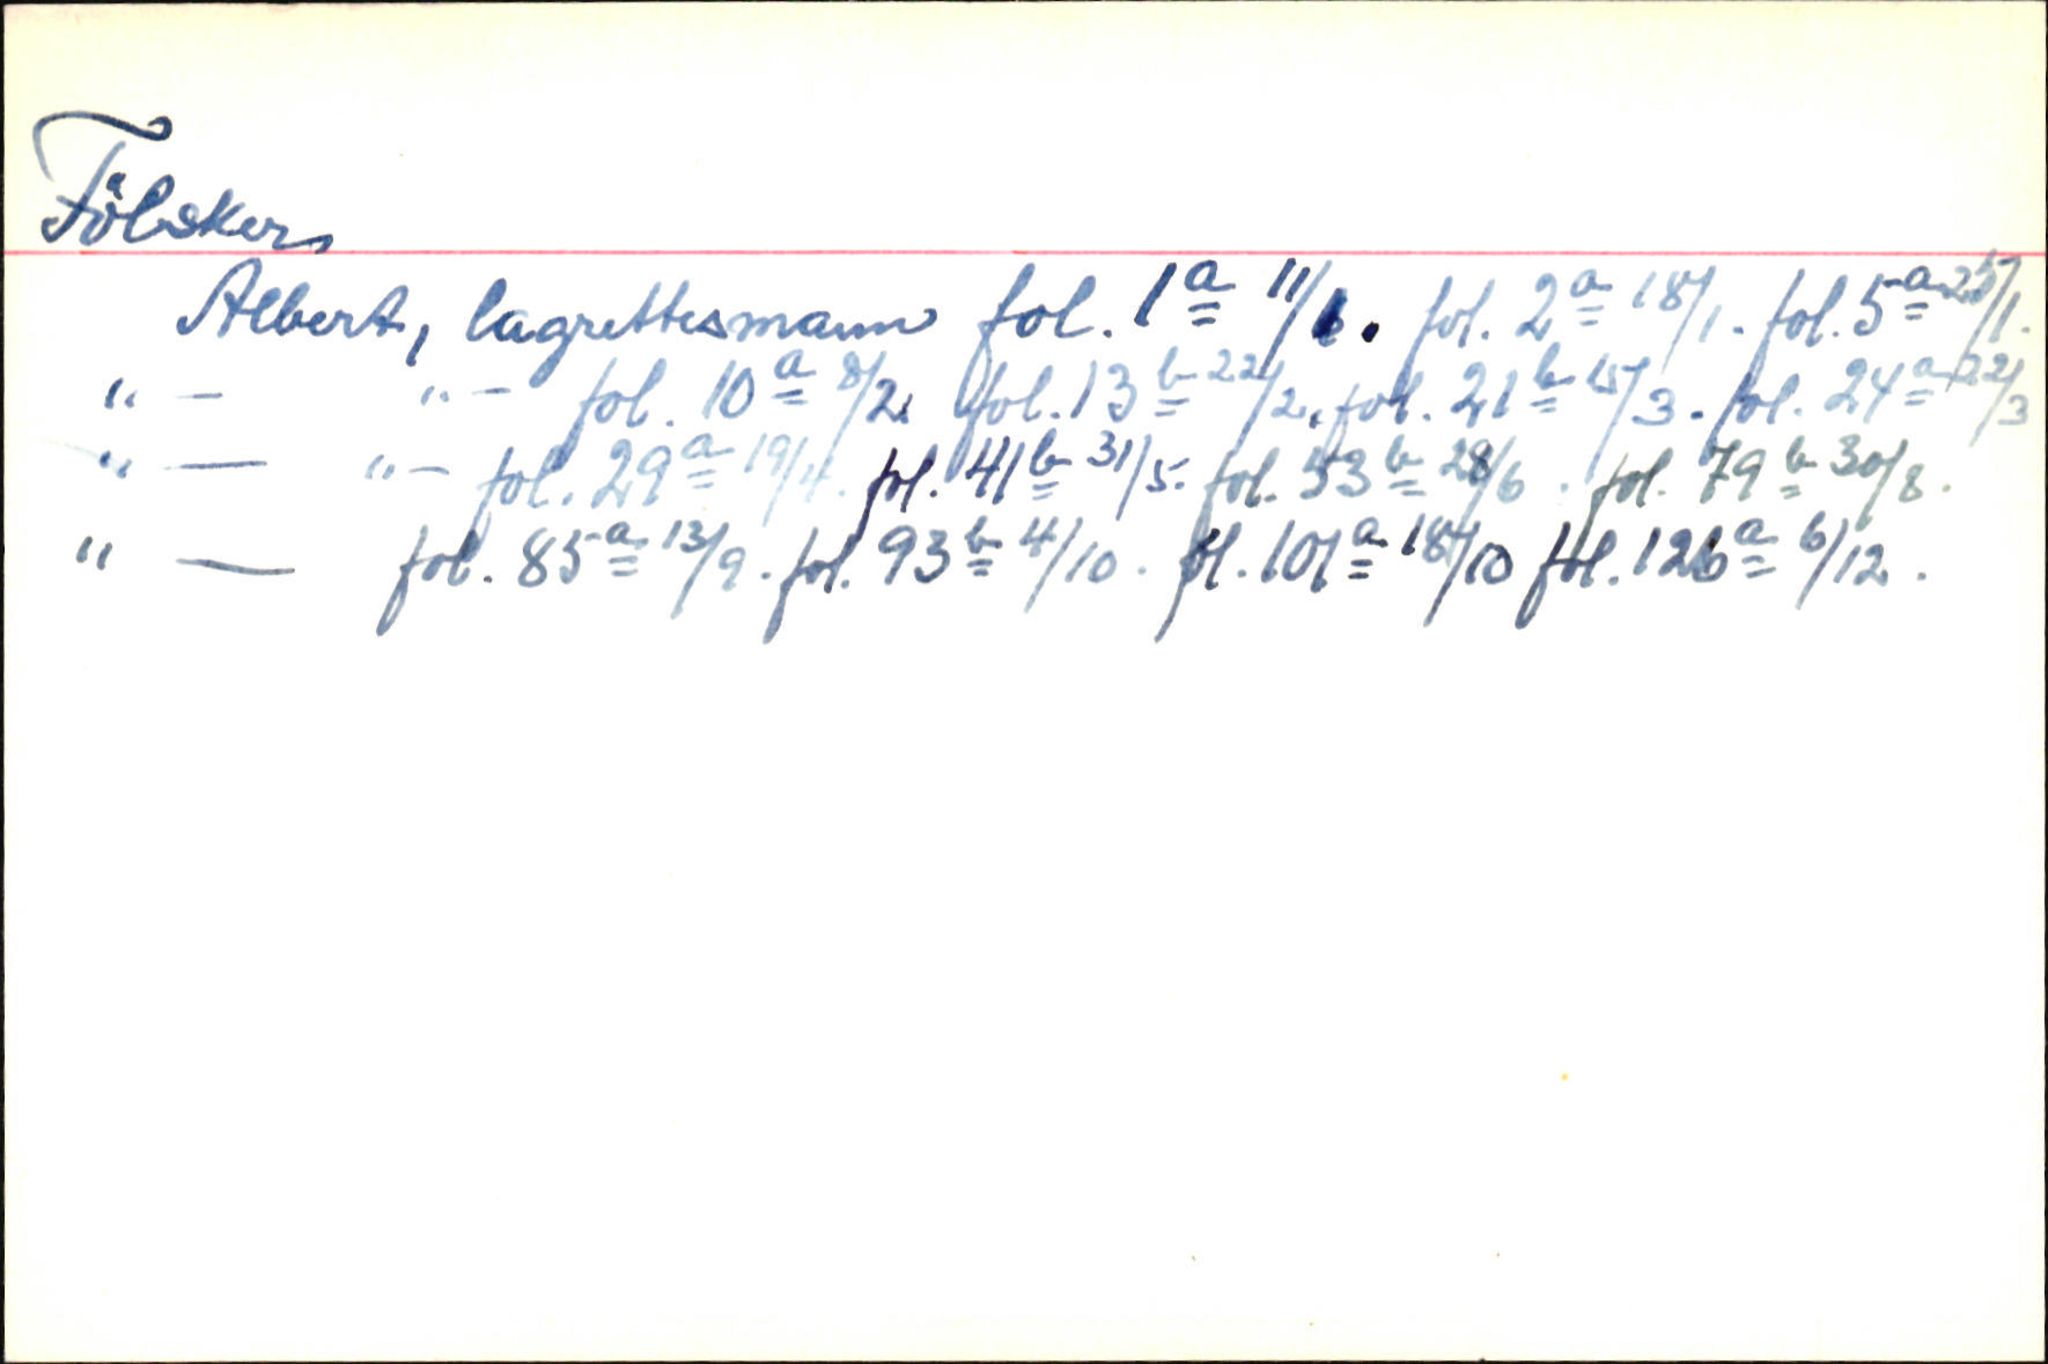 Fölsker,
Albert, lagrettesmann fol. 1a 11/1. fol. 2a 18/1. fol. 5a 25/1.
" — " — fol. 10a 8/2. fol. 13b 22/2. fol. 21b 15/3. fol. 24a 22/3
" — " — fol. 29a 19/4. fol. 41b 31/5. fol. 53b 28/6. fol. 79b 30/8.
" — fol. 85a 13/9. fol. 93b 4/10. fol. 101a 18/10 fol. 126a 6/12.